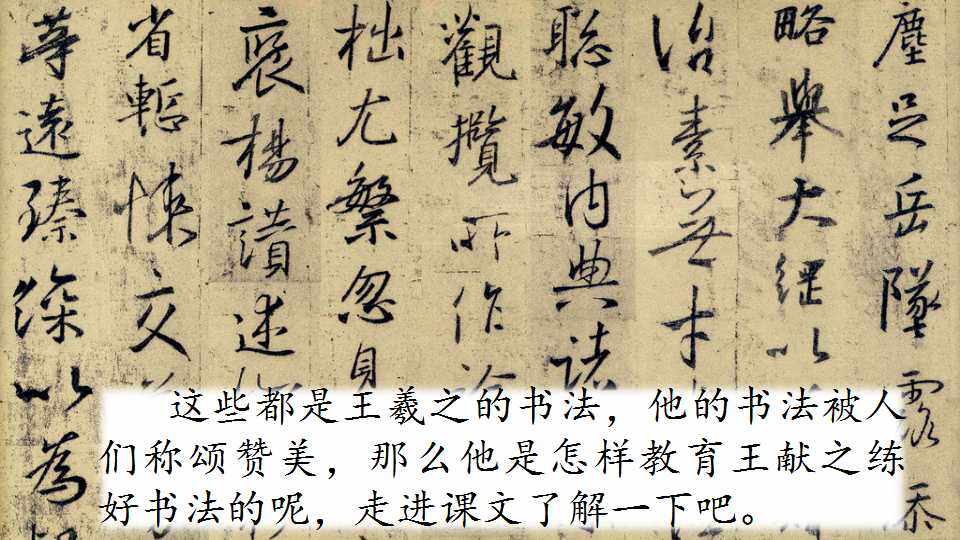 塵足岳墜露添
略舉大綱以
治素無才
聰敏內典諸
觀攬所作論
拙尤繁忽見
褒揚讚述
省慙悚交
等遠臻深以為
这些都是王羲之的书法，他的书法被人
们称颂赞美，那么他是怎样教育王献之练
好书法的呢，走进课文了解一下吧。